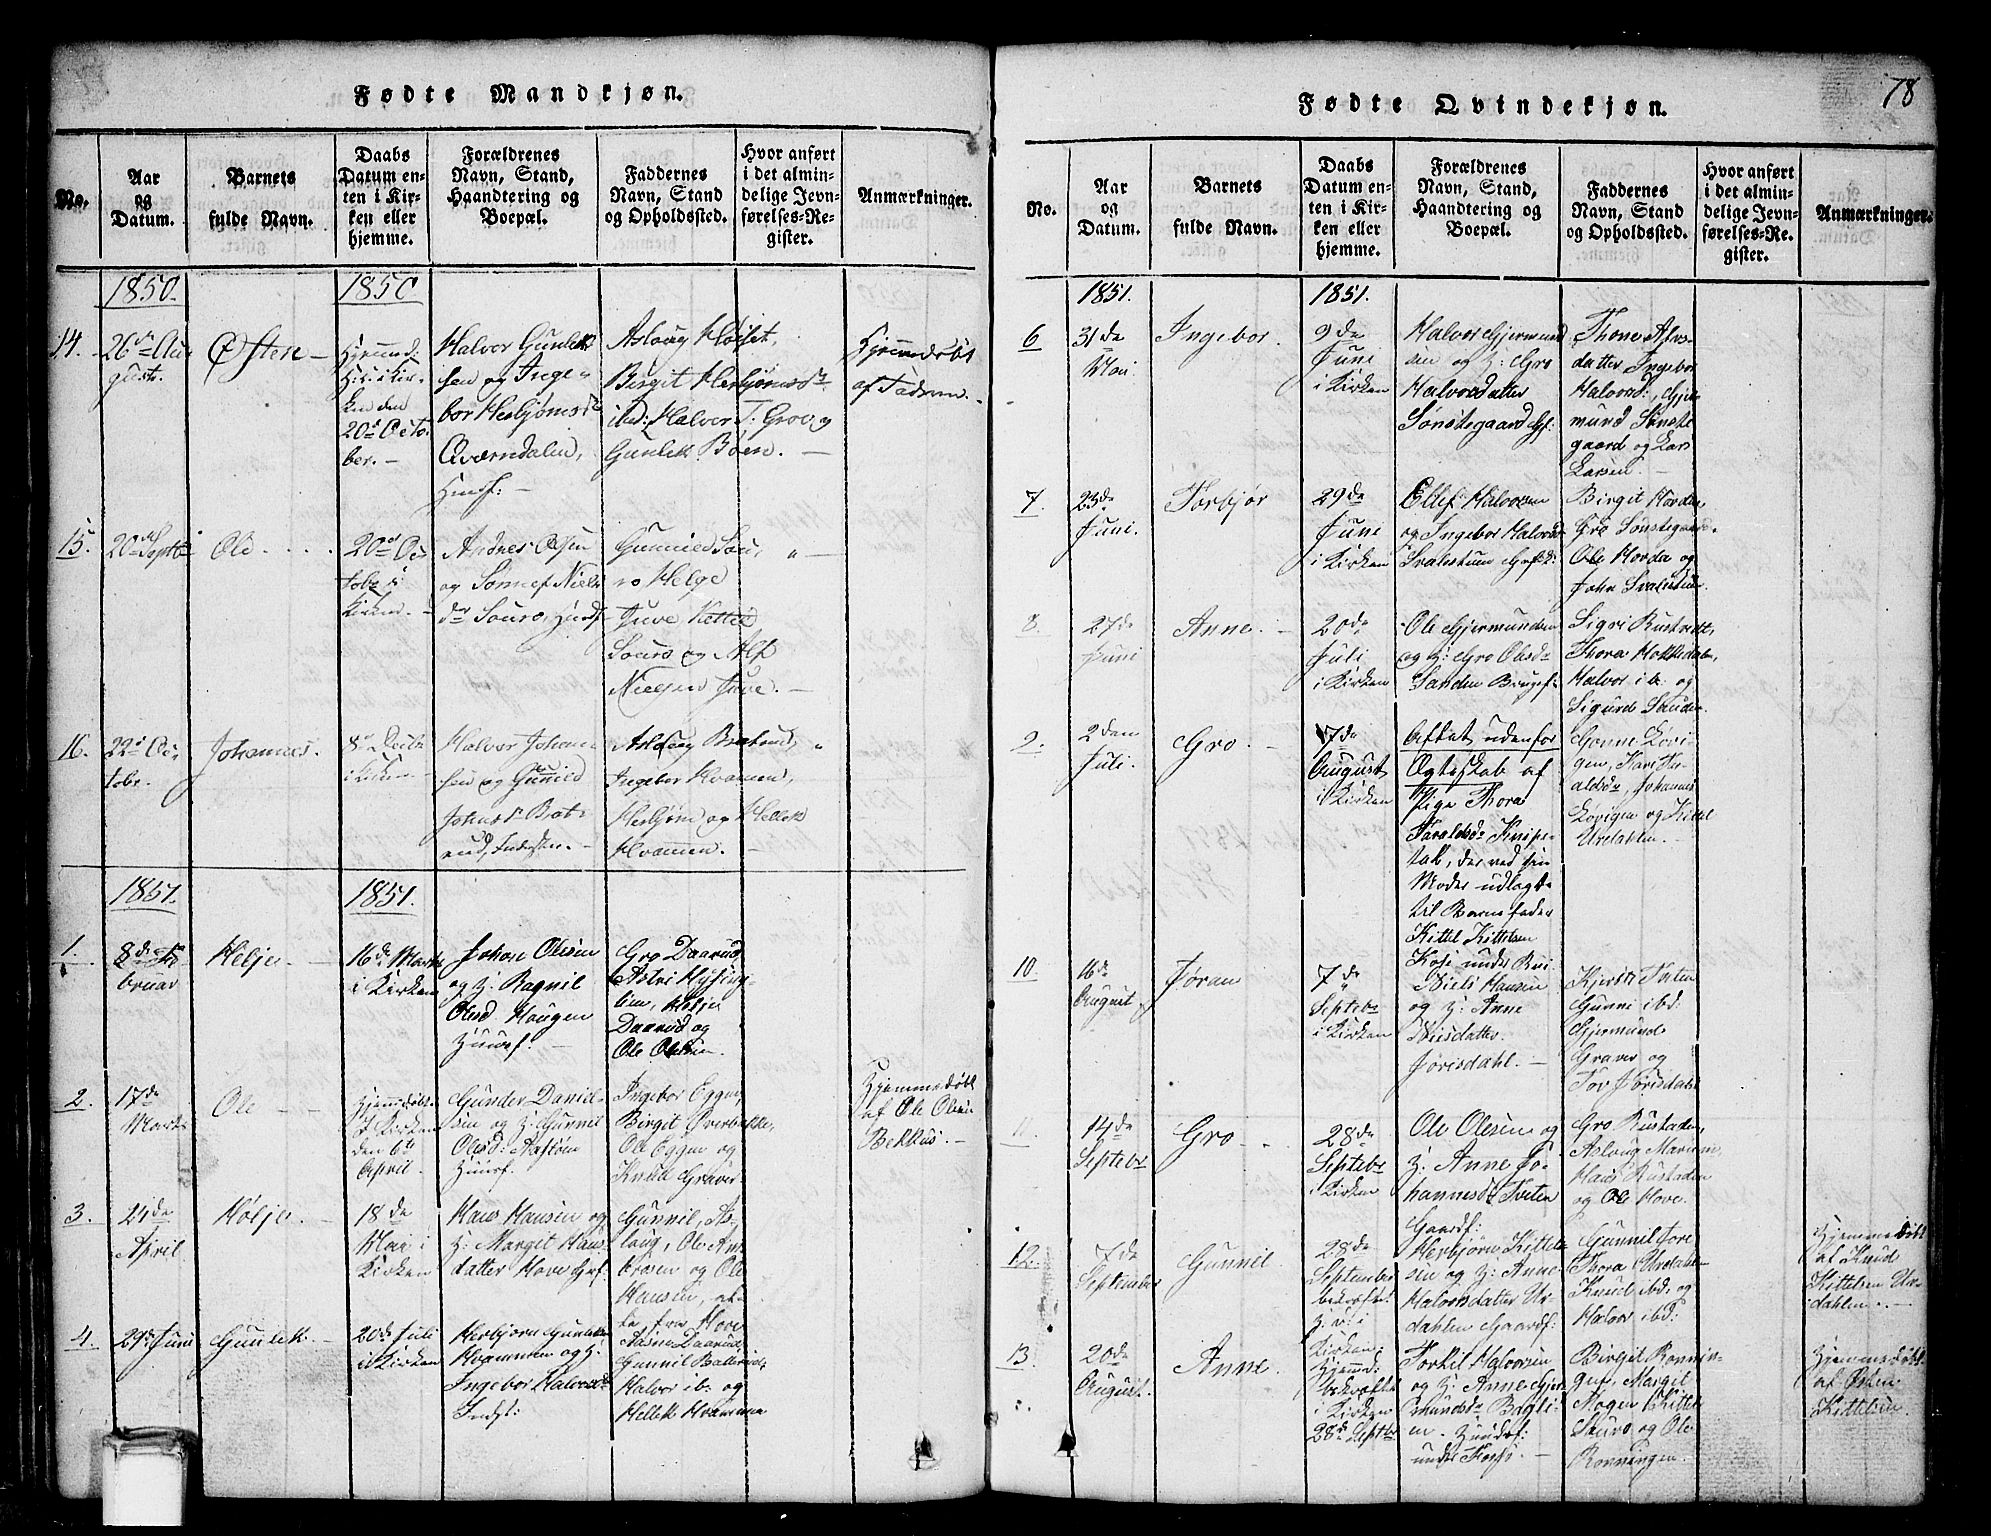 Fødte Mandkjøn.
No.
Aar
og
Datum.
Barnets
fulde Navn.
Daabs
Datum en-
ten i Kir-
ken eller
hjemme.
Forældrenes
Navn, Stand,
Haandtering og
Boepæl.
Faddernes
Navn, Stand
og Opholdssted.
Hvor anført
i det almin-
delige Jevn-
førelses-Re-
gister.
Anmærkninger.
1850.
1850
14.
26de Au-
gust.
Østen
Hjemmed:
i Kir-
ken den
20de Octo-
ber. –
Halvor Gunleik-
sen og Inge-
bor Herbjørnsdr
Qværndalen,
Huusf: –
Asloug Kløset,
Birgit Herbjørnsdr
ibd: Halvor T. Grov, og
Gunleik Bøen. –
Hjemmedøbt
af Fadren. –
15.
20de Septbr
Ole
20de Oc-
tobr i
Kirken. –
Andres Olsen
og Sønnef Niels-
dr Souro, Huusf
Gunnild Sou-
ro Helge
Juve Kettil
Souro og Alf
Nielsen Juve. –
16.
22de Oc-
tobr.
Johannes.
8de Decbr
i Kirken –
Halvor Johan-
sen og Gunild
Johnsdr Brat-
rud, Inderst. –
Asloug Bratrud,
Ingebor Kvamen,
Herbjørn og Hellek
Kvamen. –
1851.
1851.
1.
8de Fe-
bruar
Helje
16de Marts
i Kirken
Johan Olesen
og H: Ragnil
Olesd. Haugen
Huusf. –
Gro Daarud,
Astri
Helje
Daarud og
Ole Olesen.
2.
17de
Marts
Ole
Hjemmedøbt.
I Kirken
den 6te
April.
Gunder Daniel-
sen og H: Gunnil
Olesd:
Huusf.
Ingebor Eggen
Birgit Øverbekke,
Ole Eggen og
Knud Graver
Hjemmedøbt
af Ole Olesen
Bekkus. –
3.
24de
April
Høljer
18de
Mai i
Kirken
Hans Hansen og
H: Margit Hans-
datter Hove Grf.
Gunnil, As-
laug, Ole
og Ole
Hansen, al-
le fra Hove
4.
29de Juni
Gunlek
20de Juli
i Kirken
Herbjørn Gunleks-
Kvammen og H:
Ingebor Halvorsdr
Indst:
Aasne Daarud,
Gunnil
Halvor ib: og
Hellek Kvamme
Fødte Qvindekjøn.
78
No.
Aar
og
Datum.
Barnets
fulde Navn.
Daabs
Datum en-
ten i Kir-
ken eller
hjemme.
Forældrenes
Navn, Stand,
Haandtering og
Boepæl.
Faddernes
Navn, Stand
og Opholdssted.
Hvor anført
i det almin-
delige Jevn-
førelses-Re-
gister.
Anmærkninger.
1851.
1851.
6
31de
Mai
Ingebor.
9de
Juni
i Kirken
Halvor Gjermund-
sen og H: Gro
Halvorsdatter
Sønstegaard Gf:
Thone
datter Ingebor
Halvorsd:, Gjer-
mund Sønste-
gaard og Lars
Larsen. –
7
23de
Juni.
Torbjør
29de
Juni
i Kirken
Ellef Halvorsen
og Ingebor Halvorsd
Svalestuen
Birgit Hovda,
Gro Sønstegaard.
Ole Hovda og
John Svalestuen.
8.
27de
Juni
Anne.
20de
Juli
i Kirken
Ole Gjermundsen
og H: Gro Olesdr
Sanden Brugsf:
Sigri Rustvedt,
Thora
Halvor ib. og
Sigurd Sanden.
9.
2den
Juli.
Gro
17de
August
i Kirken
Aflet udenfor
Ægteskab af
Pige Thora
Taraldsdr Knipe-
tak, der ved sin
Moder udlagde
til Barnefader
Kittel Kittelsen
Gonne Løvi-
gen, Kari Ta-
aldsdr, Johannes
Løvigen og Kittel
Urdahlen. –
10.
16de
August
Jøran
7de
Septebr
i Kirken
Niels Hansen
og H: Anne
Nilsdatter
Jørisdahl. –
Kjersti Tveten
Gunni ibd.
Gjermund
Graver og
Tov Jørisdahl
11.
14de
Septebr
Gro
28de
Septebr
i Kirken
Ole Olesen og
H: Anne Jo-
hannesdr Tveten
Gaardf:
Gro Rustaden,
Aslaug
Hans Rustaden
og Ole Hove.
12.
7de
September
Gunnil
28de
September
bekræftet
i
Kirken
Herbjørn Kittel-
sen og H: Anne
Halvorsdatter Ur-
dahlen Gaardf:
Gunnil
Thora Urdahlen
Knud ibd. og
Halvor ibd:
Hjemmedøbt
af Knud
Kittelsen Ur-
dahlen. –
13.
20de
August.
Anne.
Hjemmed:
bekræftet
i Kirken
28de Septbr
Torkil Halvorsen
og H: Anne Gjer-
mundsdr Bøgli-
en. Huusf:
under
Birgit Rønnin-
gen, Margit
Mogen Kittel
Sauro og Ole
Rønningen.
Hjemmedøbt
af Østen
Kittelsen.